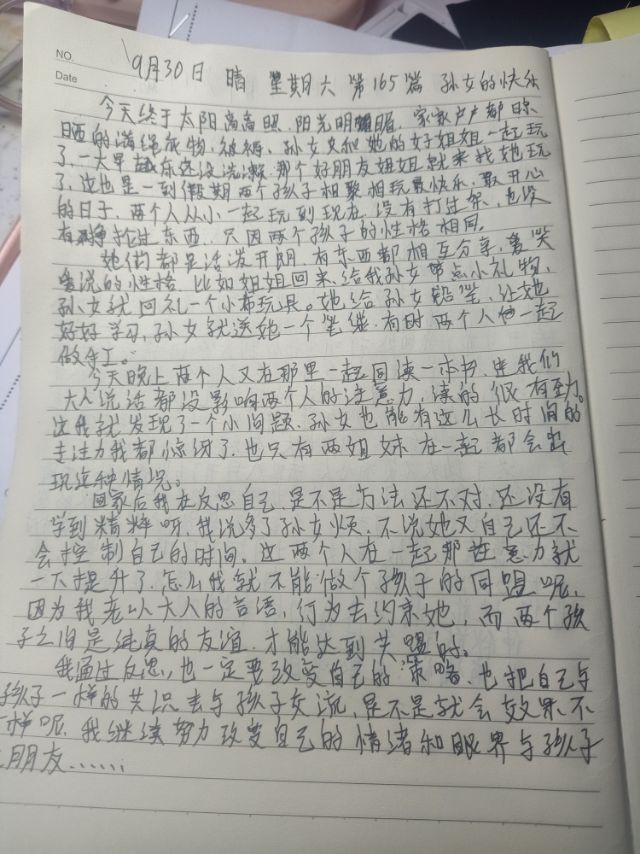 NO.
Date
9月30日 晴 星期六 第165篇 孙女的快乐
今天终于太阳高高照,阳光明媚,家家户户都
晒的满绳衣物,被褥,孙女又和她的好姐姐一起玩
了,一大早还没洗漱,那个好朋友姐姐就来找她玩
了,这也是一到假期两个孩子相聚相玩最快乐,最开心
的日子,两个人从小一起玩到现在,没有打过架,也没
有争抢过东西,只因两个孩子的性格相同。
她们都是活泼开朗,有东西都相互分享,爱笑
爱说的性格,比如姐姐回来,给我孙女带点小礼物,
孙女就回礼一个小布玩具。她给孙女铅笔,让她
好好学习,孙女就送她一个笔继,有时两个人一起
做手工。
今天晚上两个人又在那里一起同读一本书,连我们
大人说话都没影响两个人的注意力,读的很有劲。
这我就发现了一个小问题,孙女也能有这么长时间的
专注力我都惊讶了,也只有两姐妹在一起都会出
现这种情况。
回家后我在反思自己,是不是方法还不对,还没有
学到精粹呀,我说多了孙女烦,不说她又自己还不
会控制自己的时间,这两个人在一起那注意力就
一下提升了,怎么我就不能做个孩子的同盟呢,
因为我老以大人的言语,行为去约束她,而两个孩
子之间是纯真的友谊,才能达到共盟的。
我通过反思,也一定要改变自己的策略,也把自己与
孩子一样的共识去与孩子交流,是不是就会效果不
一样呢,我继续努力改变自己的情绪和眼界与孩子
朋友……